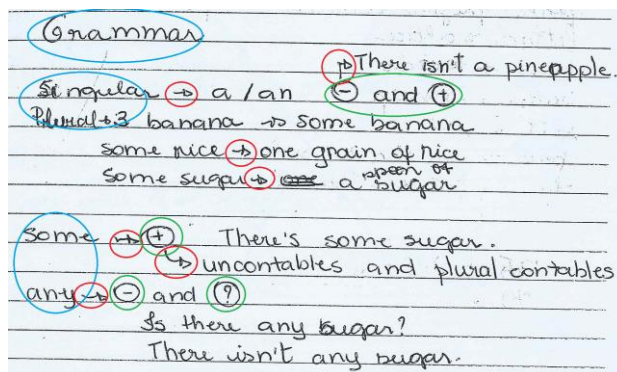 Grammar
→ There isn't a pineapple.
Singular → a / an ⊖ and ⊕
Plural → 3 banana → some banana
some rice → one grain of rice
some sugar → a spoon of sugar
some → ⊕ There's some sugar.
↳ uncontables and plural contables
any → ⊖ and ?
Is there any sugar?
There isn't any sugar.